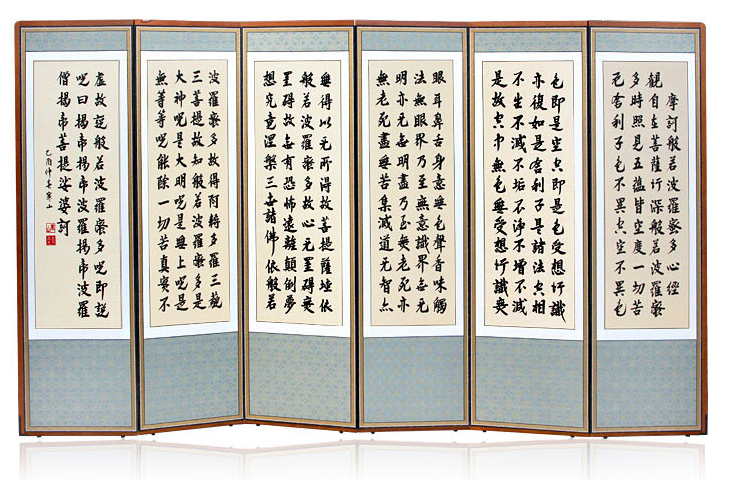 摩訶般若波羅蜜多心經
觀自在菩薩行深般若波羅蜜
多時照見五蘊皆空度一切苦
厄舍利子色不異空空不異色
色即是空空即是色受想行識
亦復如是舍利子是諸法空相
不生不滅不垢不淨不增不減
是故空中無色無受想行識無
眼耳鼻舌身意無色聲香味觸
法無眼界乃至無意識界無无
明亦无無明盡乃至無老死亦
無老死盡無苦集滅道无智亦
無得以无所得故菩提薩埵依
般若波羅蜜多故心无罣碍無
罣碍故無有恐怖遠離顛倒夢
想究竟涅槃三世諸佛依般若
波羅蜜多故得阿耨多羅三藐
三菩提故知般若波羅蜜多是
大神呪是大明呪是無上呪是
無等等呪能除一切苦真實不
虛故說般若波羅蜜多呪即說
呪曰揭帝揭帝波羅揭帝波羅
僧揭帝菩提娑婆訶